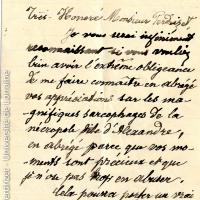 Très-Honoré Monsieur Perdrizet
Je vous serai infiniment
reconnaissant si vous vouliez
bien avoir l'extrême obligeance
de me faire connaître en abrégé
vos appréciations sur les ma-
gnifiques sarcophages de la
nécropole d'Alexandre,
en abrégé parce que vos mo-
ments sont précieux et que
je n'ose pas trop en abuser.
Cela pourra porter un vrai
Université de Lorraine